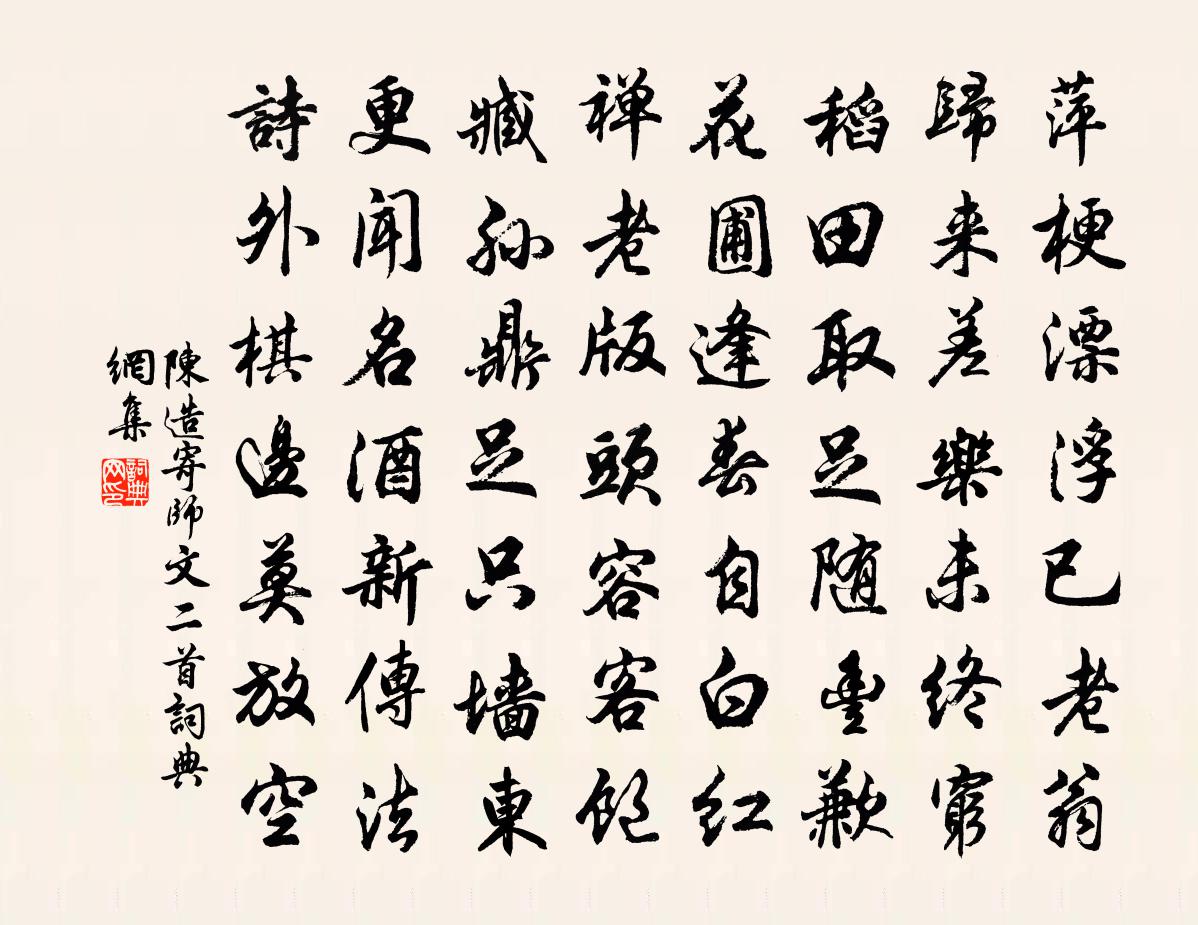 萍梗漂浮已老翁
歸来差樂未終窮
稻田取足随豐歉
花圃逢春自白红
禅老版頭容客飽
臧孫鼎足只墙東
更闻名酒新傳法
詩外棋邊莫放空
陳造寄師文二首詞典
網集
詞典
网印